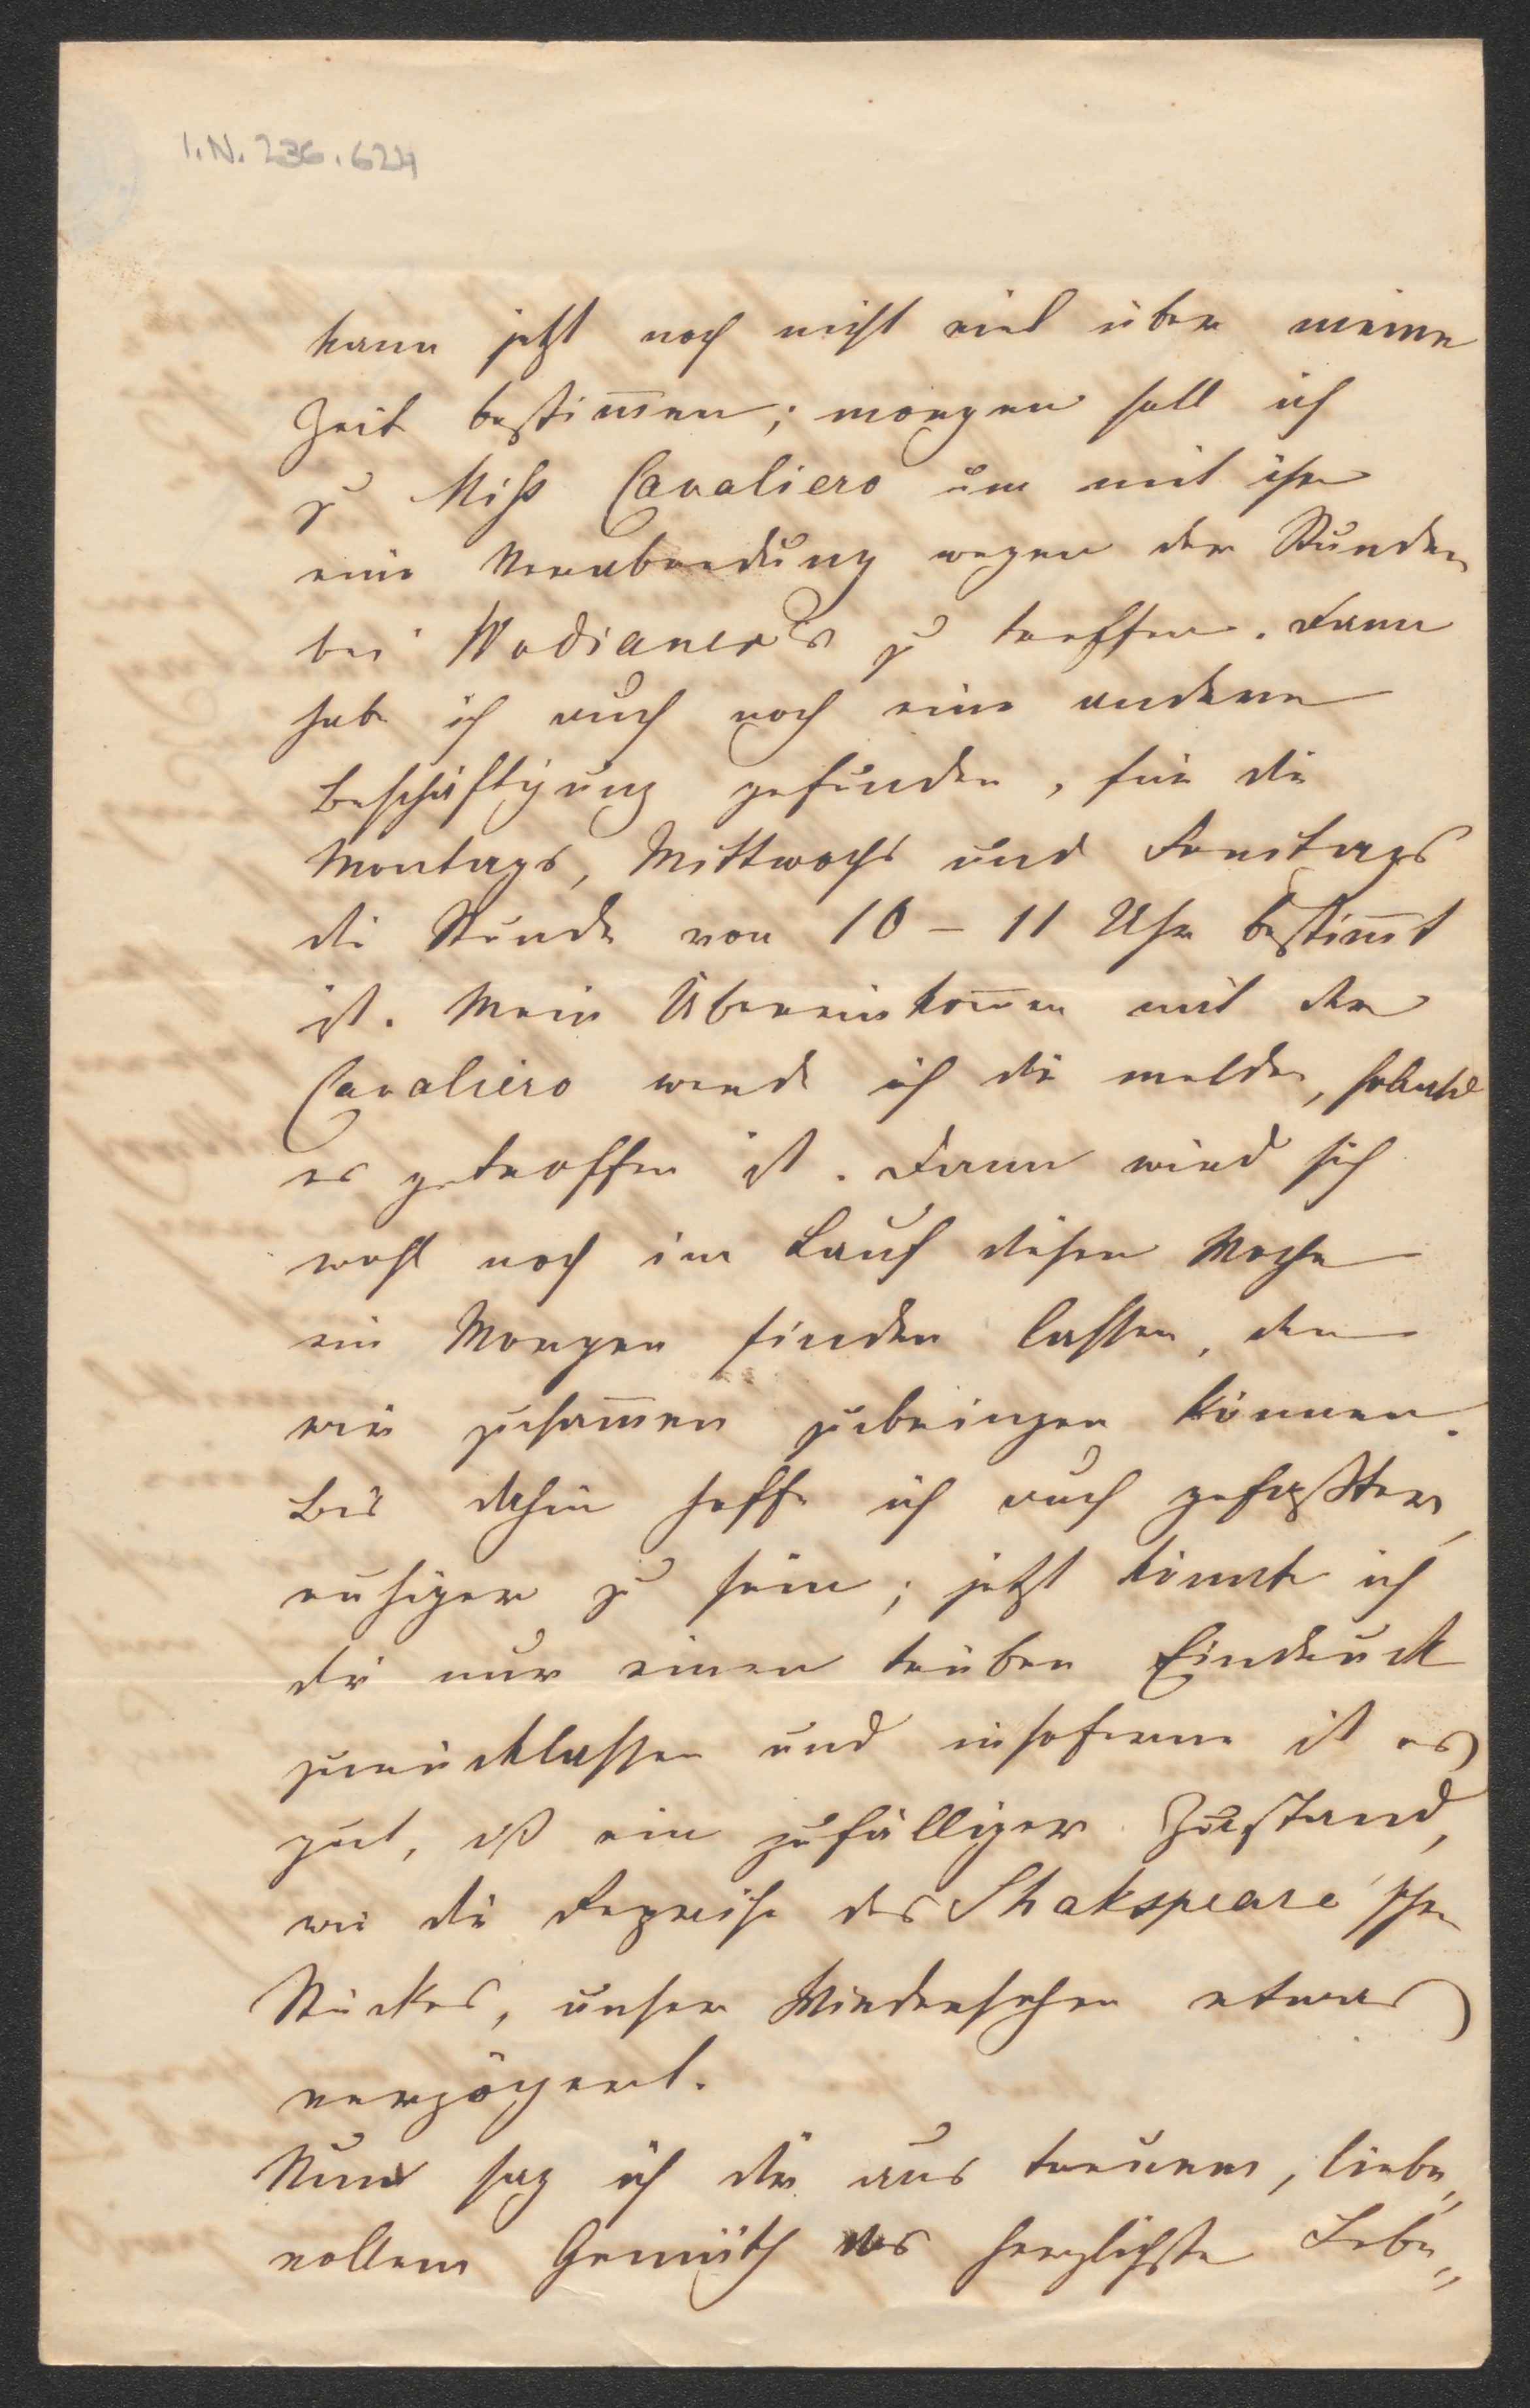 I.N. 236.624
kann jetzt noch nicht viel über meine
Zeit bestim̄en; morgen soll ich
zu Miß Cavaliero um mit ihr
eine Verabredung wegen der Stunden
bei Wodianer's zu treffen. Dann
hab ich auch noch eine andere
Beschäftigung gefunden, für die
Montags, Mittwochs und Freitags
die Stunde von 10 – 11 Uhr bestim̄t
ist. Mein Übereinkom̄en mit der
Cavaliero werde ich dir melden, sobald
es getroffen ist. Dann wird sich
wohl noch im Lauf dieser Woche
ein Morgen finden lassen, den
wir zusam̄en zubringen können.
Bis dahin hoffe ich auch gefaßter,
ruhiger zu sein; jetzt könnte ich
dir nur einen trüben Eindruck
zurücklassen und insoferne ist es
gut, daß ein zufälliger Zustand,
wie die Reprise des Shakspeare'schen
Stückes, unser Wiedersehen etwas
verzögert.
Nun sag ich dir aus treuem, liebe„
vollem Gemüth das herzlichste Lebe„